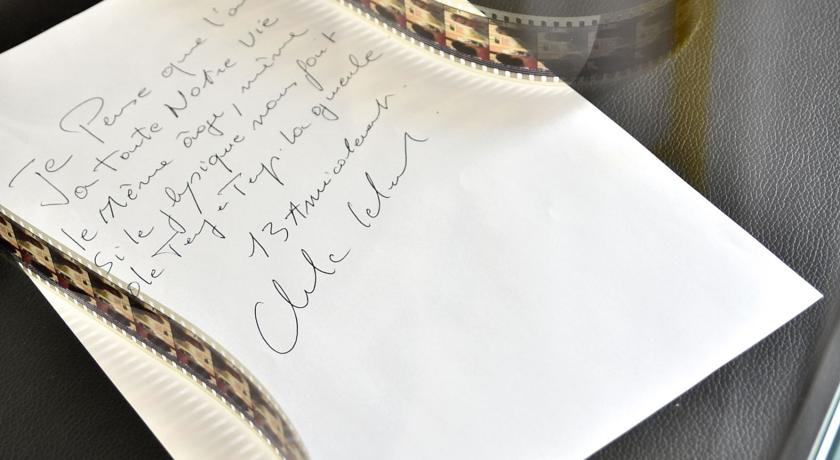 Je Pense que l'on
a toute Notre Vie
le Même âge, même
si le physique nous fout
de Temps à Temps. la gueule
13 Amicalement.